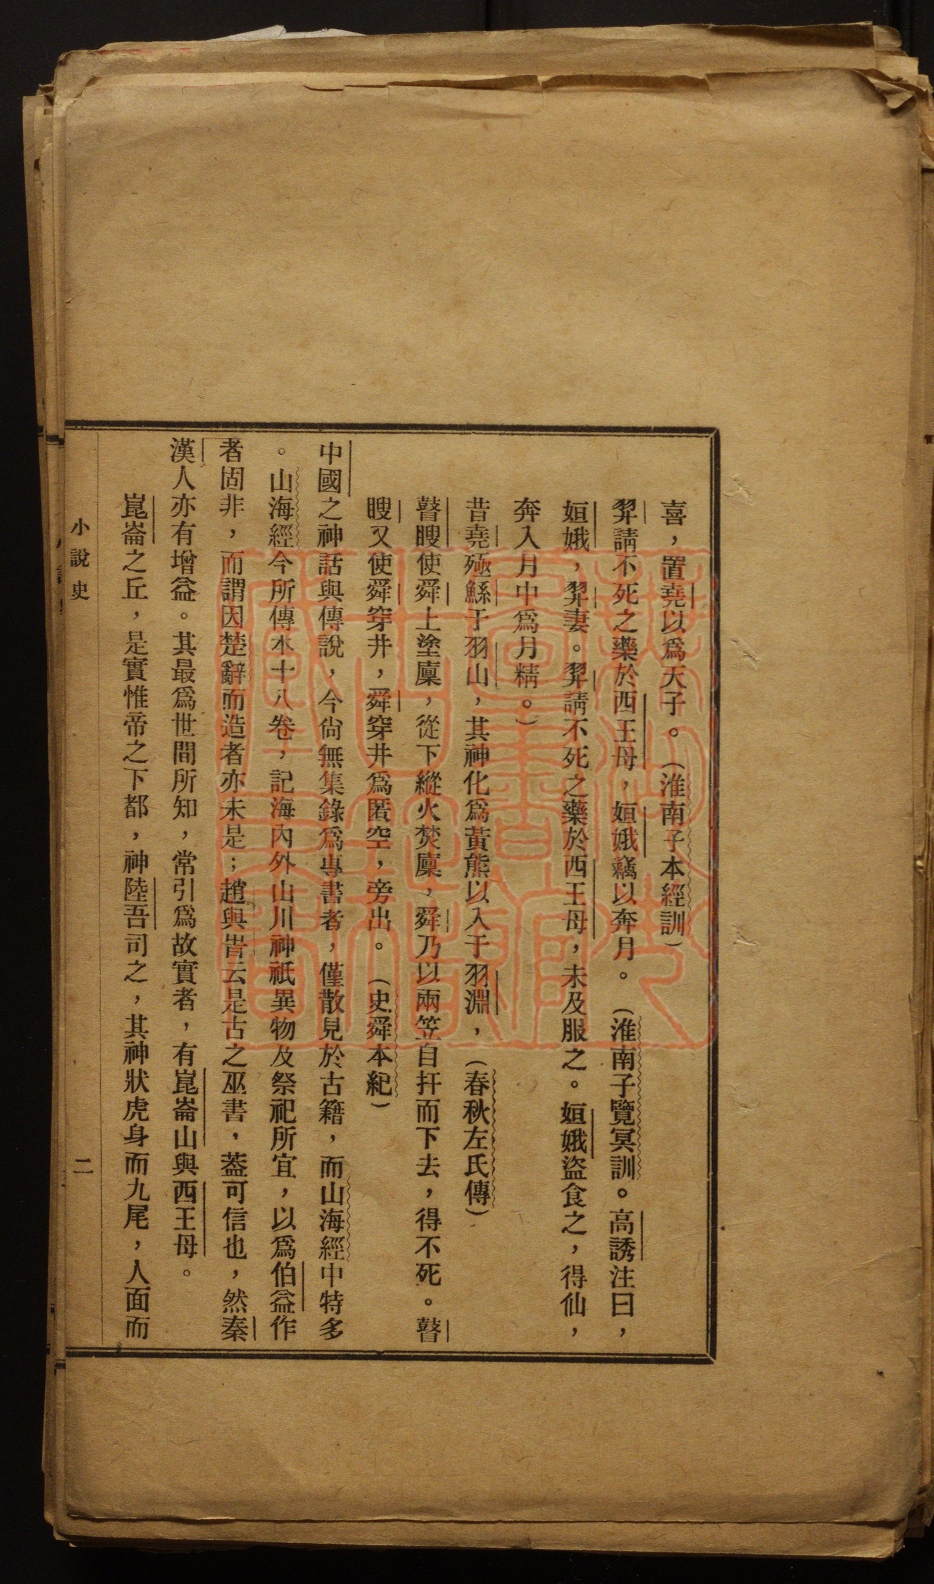 喜，置堯以爲天子。（淮南子本經訓）
羿請不死之藥於西王母，姮娥竊以奔月。（淮南子覽冥訓。高誘注曰，
姮娥，羿妻。羿請不死之藥於西王母，未及服之。姮娥盜食之，得仙，
奔入月中爲月精。）
昔堯殛鯀于羽山，其神化爲黃熊以入于羽淵，（春秋左氏傳）
瞽瞍使舜上塗廩，從下縱火焚廩，舜乃以兩笠自扞而下去，得不死。瞽
瞍又使舜穿井，舜穿井爲匿空，旁出。（史舜本紀）
中國之神話與傳說，今尙無集錄爲專書者，僅散見於古籍，而山海經中特多
。山海經今所傳本十八卷，記海內外山川神祇異物及祭祀所宜，以爲伯益作
者固非，而謂因楚辭而造者亦未是；趙與旹云是古之巫書，葢可信也，然秦
漢人亦有增益。其最爲世間所知，常引爲故實者，有崑崙山與西王母。
崑崙之丘，是實惟帝之下都，神陸吾司之，其神狀虎身而九尾，人面而
小說史
二